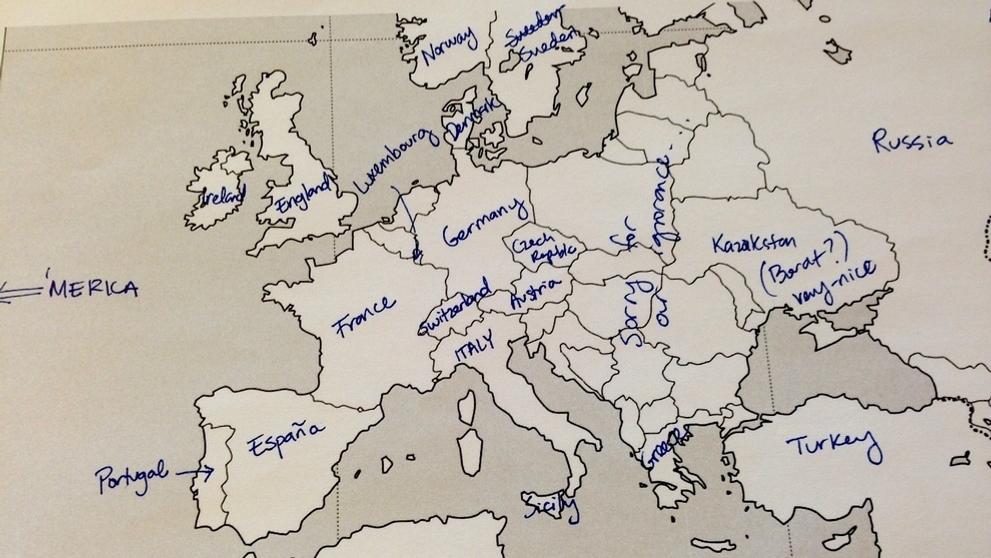 Norway
Sweden
Sweden
Denmark
Luxembourg
Russia
Ireland
England
Germany
Czech
Republic
Kazakstan
(Borat?)
very-nice
'MERICA
France
Switzerland
Austria
ITALY
Sorry for
our ignorance.
España
Portugal
Greece
Turkey
Sicily